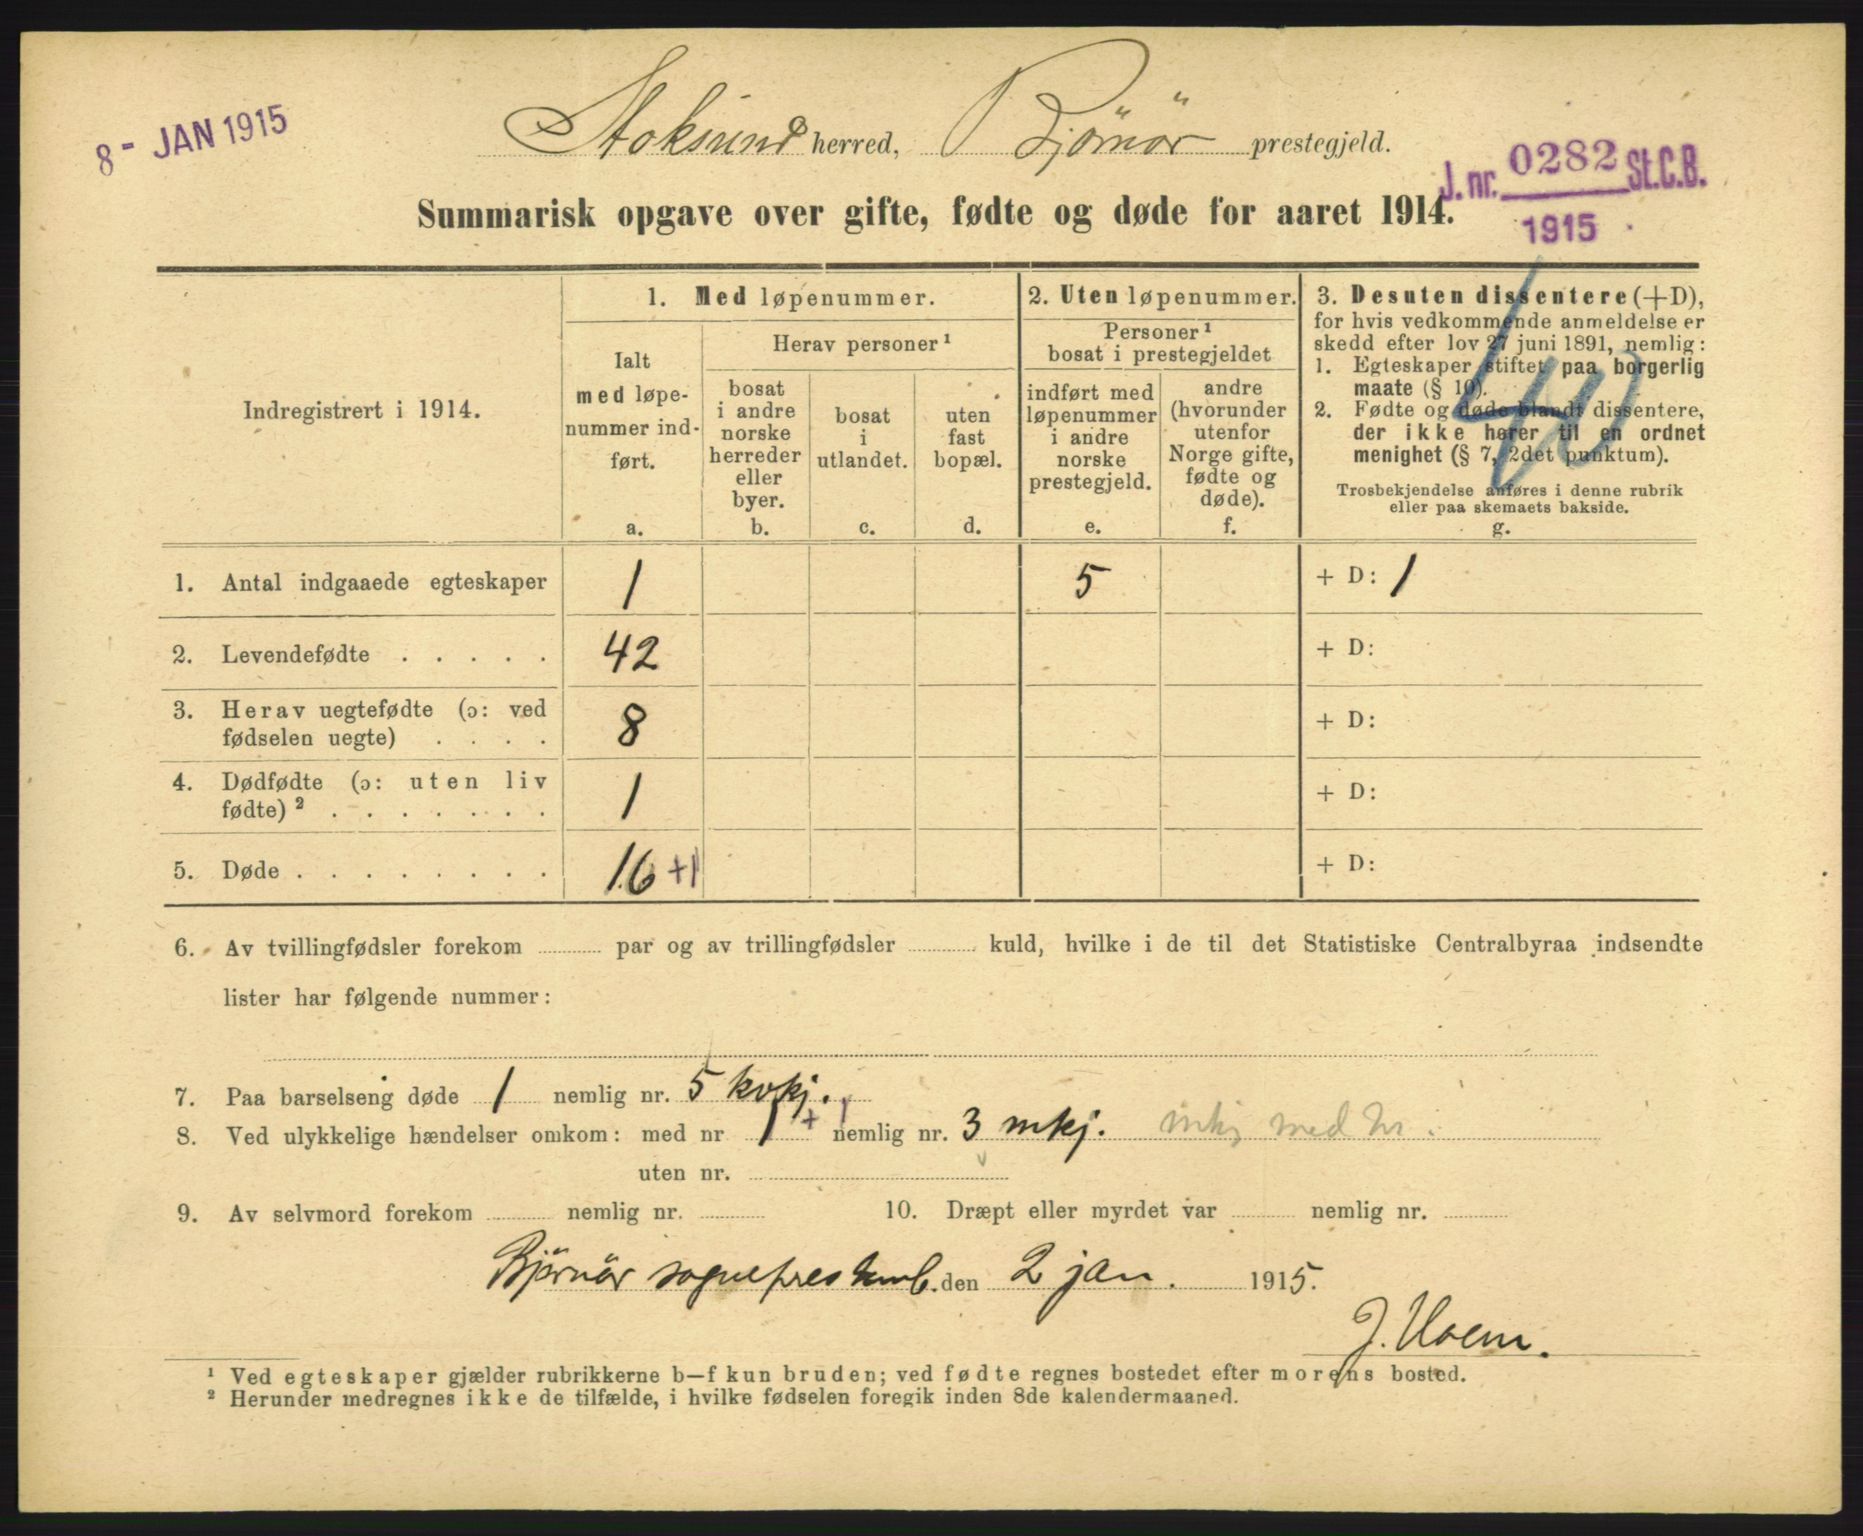 8 - JAN 1915
Stoksund herred, Bjönör prestegjeld.
J. nr. 0282 St.C.B.
1915
Summarisk opgave over gifte, fødte og døde for aaret 1914.
Indregistrert i 1914.
1. Med løpenummer.
Ialt
med løpe-
nummer ind-
ført.
a.
Herav personer ¹
bosat
i andre
norske
herreder
eller
byer.
b.
bosat
i
utlandet.
c.
uten
fast
bopæl.
d.
2. Uten løpenummer.
Personer ¹
bosat i prestegjeldet
indført med
løpenummer
i andre
norske
prestegjeld.
e.
andre
(hvorunder
utenfor
Norge gifte,
fødte og
døde).
f.
3. Desuten dissentere (+D),
for hvis vedkommende anmeldelse er
skedd efter lov 27 juni 1891, nemlig:
1. Egteskaper stiftet paa borgerlig
maate (§ 10).
2. Fødte og døde blandt dissentere,
der ikke hører til en ordnet
menighet (§ 7, 2det punktum).
Trosbekjendelse anføres i denne rubrik
eller paa skemaets bakside.
g.
40
1. Antal indgaaede egteskaper 1 5 + D: 1
2. Levendefødte . . . . . 42 + D:
3. Herav uegtefødte (ɔ: ved
fødselen uegte) . . . . 8 + D:
4. Dødfødte (ɔ: uten liv
fødte) ² . . . . . . . 1 + D:
5. Døde . . . . . . . . 16 +1 + D:
6. Av tvillingfødsler forekom par og av trillingfødsler kuld, hvilke i de til det Statistiske Centralbyraa indsendte
lister har følgende nummer:
7. Paa barselseng døde 1 nemlig nr. 5 kvkj.
8. Ved ulykkelige hændelser omkom: med nr 1 + 1 nemlig nr. 3 mkj. mkj med nr.
uten nr.
9. Av selvmord forekom nemlig nr. 10. Dræpt eller myrdet var nemlig nr.
Bjørnör sogneprestemb. den 2 jan. 1915.
J. Hoem.
¹ Ved egteskaper gjælder rubrikkerne b—f kun bruden; ved fødte regnes bostedet efter morens bosted.
² Herunder medregnes ikke de tilfælde, i hvilke fødselen foregik inden 8de kalendermaaned.